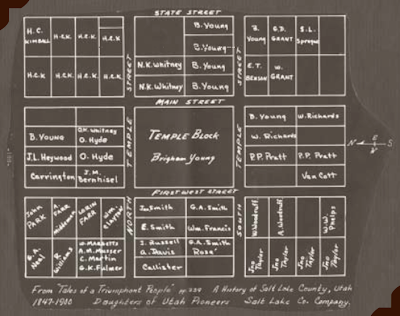 STATE STREET
H.C. KIMBALL
H.C.K
H.C.K
H.C.K
H.C.K
H.C.K
H.C.K
H.C.K
STREET
B. Young
B. Young
N.K. Whitney
B. Young
N.K. Whitney
B. Young
STREET
B. Young
G.D. GRANT
S.L. Sprague
E.T. BENSON
W. GRANT
MAIN STREET
B. Young
O.K. Whitney
O. Hyde
J.L. Heywood
O. Hyde
Carrington
J.M. Bernhisel
TEMPLE
TEMPLE BLOCK
Brigham Young
TEMPLE
B. Young
W. Richards
W. Richards
P.P. Pratt
P.P. Pratt
P.P. Pratt
Van Cott
N
E
S
W
FIRST WEST STREET
John PARK
LORIN FARR
Wm. CLAYTON
G.A. Neal
Williams
W. MARGETTS
A.M. Musser
C. Martin
G.K. Fulmer
NORTH
Jo. Smith
G.A. Smith
E. Smith
Wm. Francis
S. Russell
G.A. Smith
A. Davis
Rose
Callister
SOUTH
W. Woodruff
A. Woodruff
W.W. Phelps
Jno Taylor
Jno Taylor
Jno Taylor
Jno Taylor
Jno Taylor
From "Tales of a Triumphant People" pp.339 A History of Salt Lake County, Utah
1847-1900 Daughters of Utah Pioneers Salt Lake Co. Company.